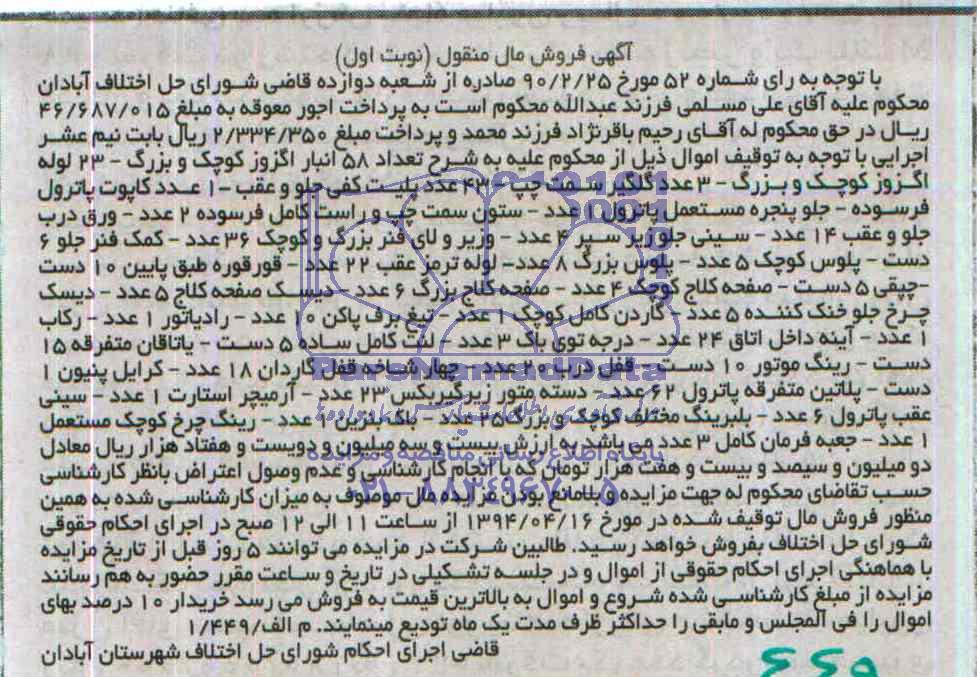 آگهی فروش مال منقول (نوبت اول)
با توجه به رای شماره ۵۲ مورخ ۹۰/۲/۲۵ صادره از شعبه دوازده قاضی شورای حل اختلاف آبادان
محکوم علیه آقای علی مسلمی فرزند عبدالله محکوم است به پرداخت اجور معوقه به مبلغ ۴۶/۶۸۷/۰۱۵
ریال در حق محکوم له آقای رحیم باقرنژاد فرزند محمد و پرداخت مبلغ ۲/۳۳۴/۳۵۰ ریال بابت نیم عشر
اجرایی با توجه به توقیف اموال ذیل از محکوم علیه به شرح تعداد ۵۸ انبار اگزوز کوچک و بزرگ - ۲۳ لوله
اگزوز کوچک و بزرگ - ۳ عدد گلگیر سمت چپ - ۴۳ عدد پلیت کفی جلو و عقب - ۱ عدد کاپوت پاترول
فرسوده - جلو پنجره مستعمل پاترول ۱ عدد - ستون سمت چپ و راست کامل فرسوده ۲ عدد - ورق درب
جلو و عقب ۱۴ عدد - سینی جلو زیر سپر ۴ عدد - وزیر و لای فنر بزرگ و کوچک ۳۶ عدد - کمک فنر جلو ۶
دست - پلوس کوچک ۵ عدد - پلوس بزرگ ۸ عدد - لوله ترمز عقب ۲۲ عدد - قورقوره طبق پایین ۱۰ دست
-چپقی ۵ دست - صفحه کلاج کوچک ۴ عدد - صفحه کلاج بزرگ ۶ عدد - دیسک صفحه کلاج ۵ عدد - دیسک
چرخ جلو خنک کننده ۵ عدد - گاردن کامل کوچک ۱ عدد - تیغ برف پاکن ۱۰ عدد - رادیاتور ۱ عدد - رکاب
۱ عدد - آینه داخل اتاق ۲۴ عدد - درجه توی باک ۳ عدد - لنت کامل ساده ۵ دست - یاتاقان متفرقه ۱۵
دست - رینگ موتور ۱۰ دست - قفل درب ۲۰ عدد - چهار شاخه قفل گاردان ۱۸ عدد - کرایل پنیون ۱
دست - پلاتین متفرقه پاترول ۶۲ عدد - دسته متور زیرگیربکس ۲۳ عدد - آرمیچر استارت ۱ عدد - سینی
عقب پاترول ۶ عدد - بلبرینگ مختلف کوچک و بزرگ ۲۵ عدد - باک بنزین ۱ عدد - رینگ چرخ کوچک مستعمل
۱ عدد - جعبه فرمان کامل ۳ عدد می باشد به ارزش بیست و سه میلیون و دویست و هفتاد هزار ریال معادل
دو میلیون و سیصد و بیست و هفت هزار تومان که با انجام کارشناسی و عدم وصول اعتراض بانظر کارشناسی
حسب تقاضای محکوم له جهت مزایده و بلامانع بودن مزایده مال موصوف به میزان کارشناسی شده به همین
منظور فروش مال توقیف شده در مورخ ۱۳۹۴/۰۴/۱۶ از ساعت ۱۱ الی ۱۲ صبح در اجرای احکام حقوقی
شورای حل اختلاف بفروش خواهد رسید. طالبین شرکت در مزایده می توانند ۵ روز قبل از تاریخ مزایده
با هماهنگی اجرای احکام حقوقی از اموال و در جلسه تشکیلی در تاریخ و ساعت مقرر حضور به هم رسانند
مزایده از مبلغ کارشناسی شده شروع و اموال به بالاترین قیمت به فروش می رسد خریدار ۱۰ درصد بهای
اموال را فی المجلس و مابقی را حداکثر ظرف مدت یک ماه تودیع مینمایند. م الف/۱/۴۴۹
قاضی اجرای احکام شورای حل اختلاف شهرستان آبادان
ParsNamadData
پایگاه اطلاع رسانی مناقصه و مزایده
۰۲۱-۸۸۳۴۹۶۷۰-۵